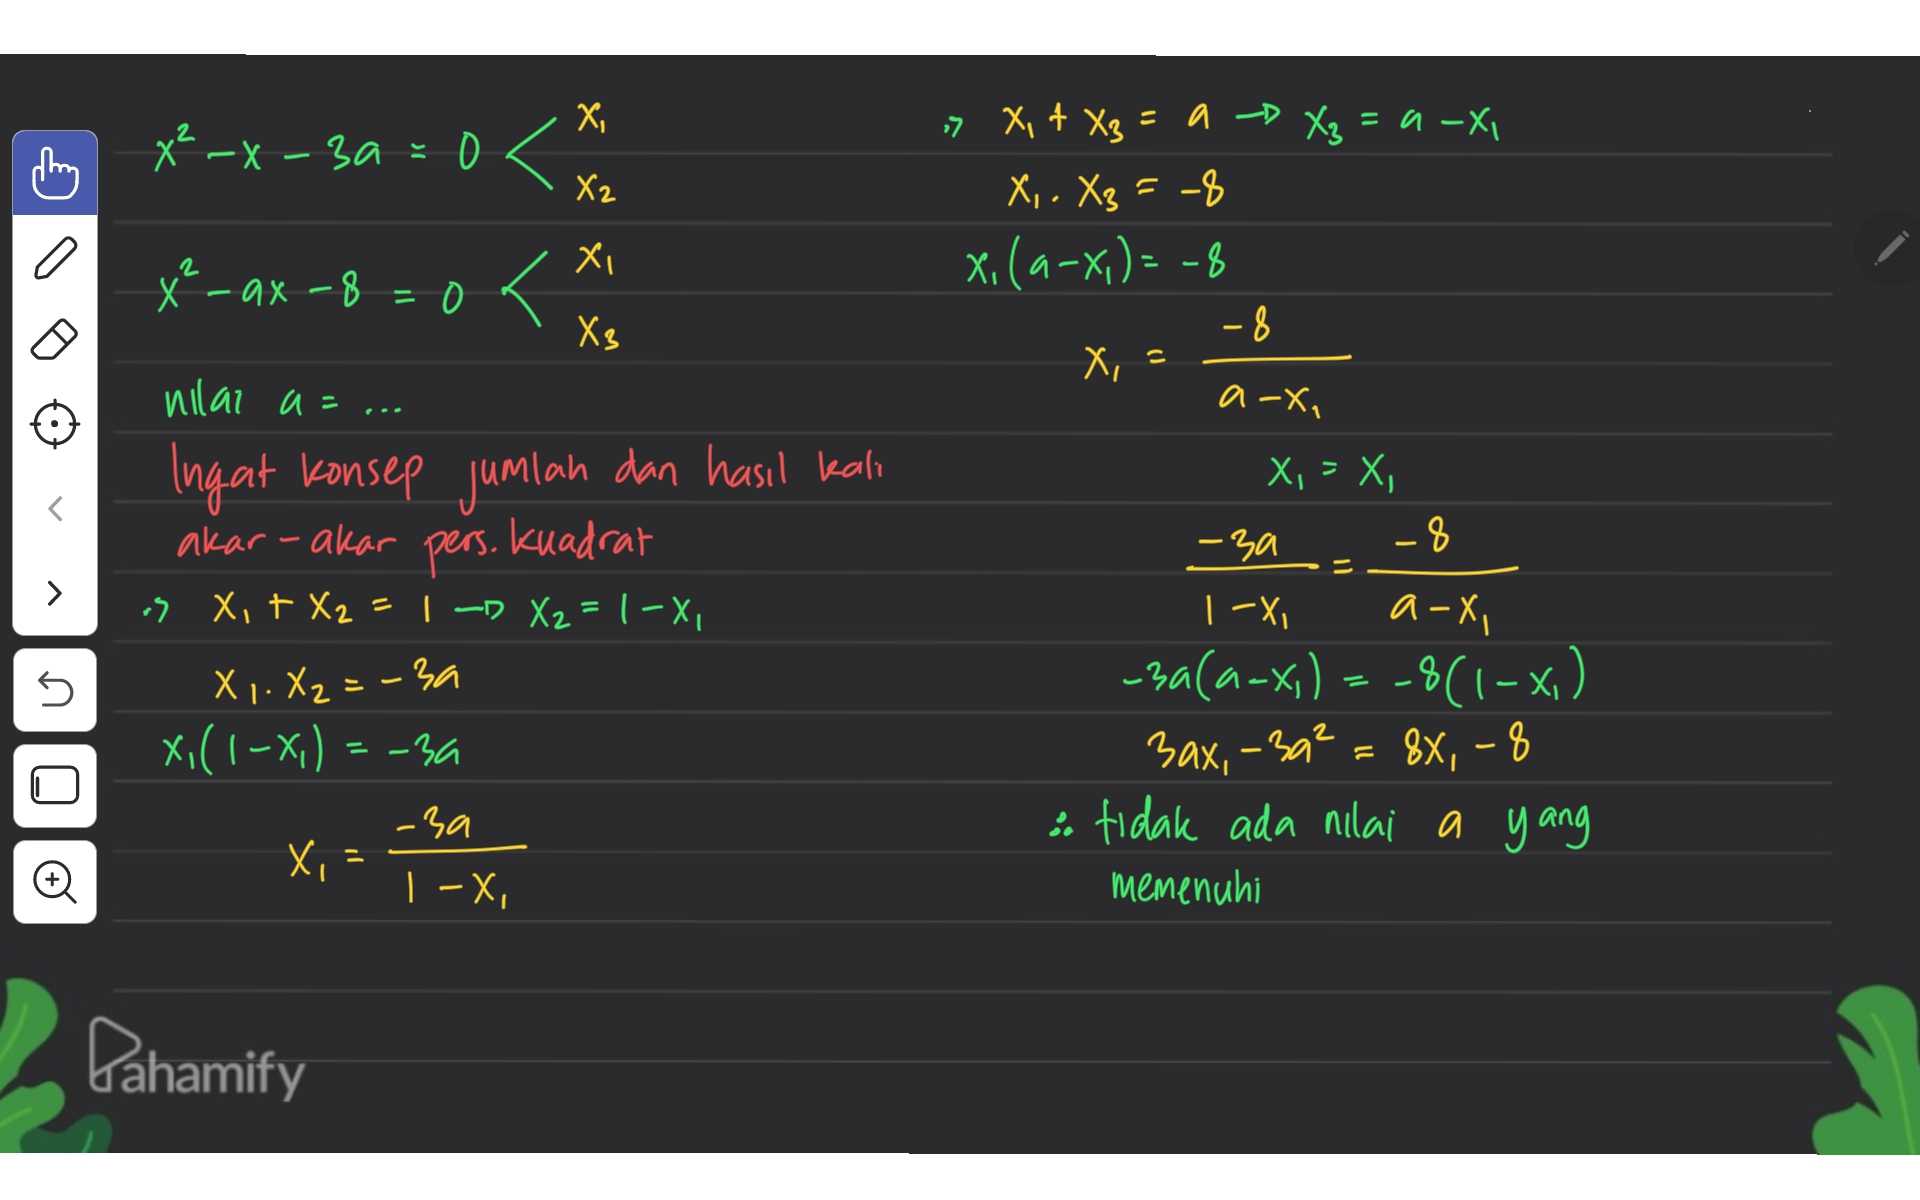 x² - x - 3a = 0 < x₁
x₂
x² - ax - 8 = 0 < x₁
x₃
nilai a = ...
Ingat konsep jumlah dan hasil kali
akar - akar pers. kuadrat
∴> x₁ + x₂ = 1 → x₂ = 1 - x₁
x₁ . x₂ = - 3a
x₁(1 - x₁) = -3a
x₁ = -3a / (1 - x₁)
∴> x₁ + x₃ = a → x₃ = a - x₁
x₁ . x₃ = -8
x₁(a - x₁) = -8
x₁ = -8 / (a - x₁)
x₁ = x₁
-3a / (1 - x₁) = -8 / (a - x₁)
-3a(a - x₁) = -8(1 - x₁)
3ax₁ - 3a² = 8x₁ - 8
∴ tidak ada nilai a yang
memenuhi
Pahamify